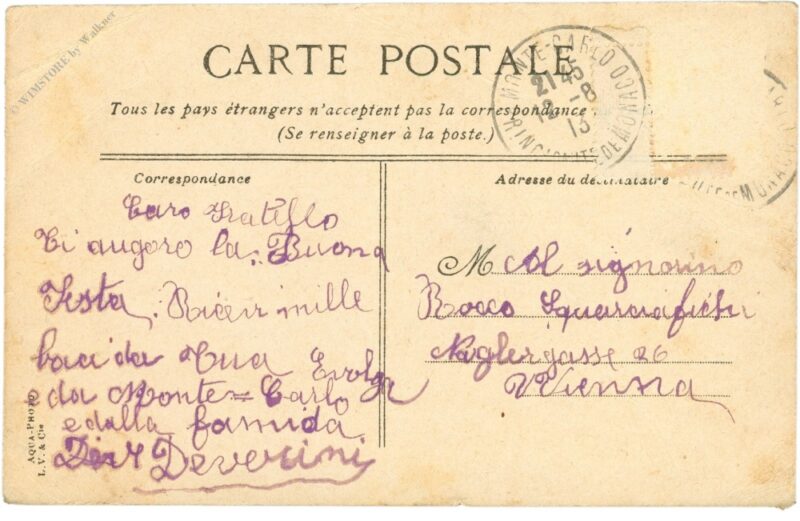 © WIMSTORE by Walkner
CARTE POSTALE
Tous les pays étrangers n'acceptent pas la correspondance
(Se renseigner à la poste.)
MONTE-CARLO
PRINCIPAUTE DE MONACO
Correspondance
Caro Fratello
Ti auguro la Buona
Festa. Ricevi mille
baci da Tua
da Monte=Carlo
e dalla
Deverini
AQUA-PHOTO
L. V. & Cie
Adresse du destinataire
M Al signorino
Rocco Squarciafichi
Naglergasse 26
Vienna